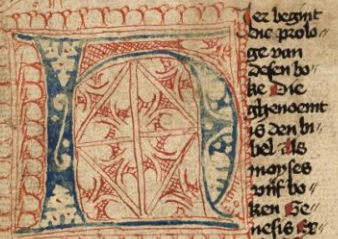 Hier begint
die prolo
ge van
desen bo〃
ke Die
ghenoemt
is den bi〃
bel Als
moyses
vijf bo〃
ken Ge〃
nesis Ex〃